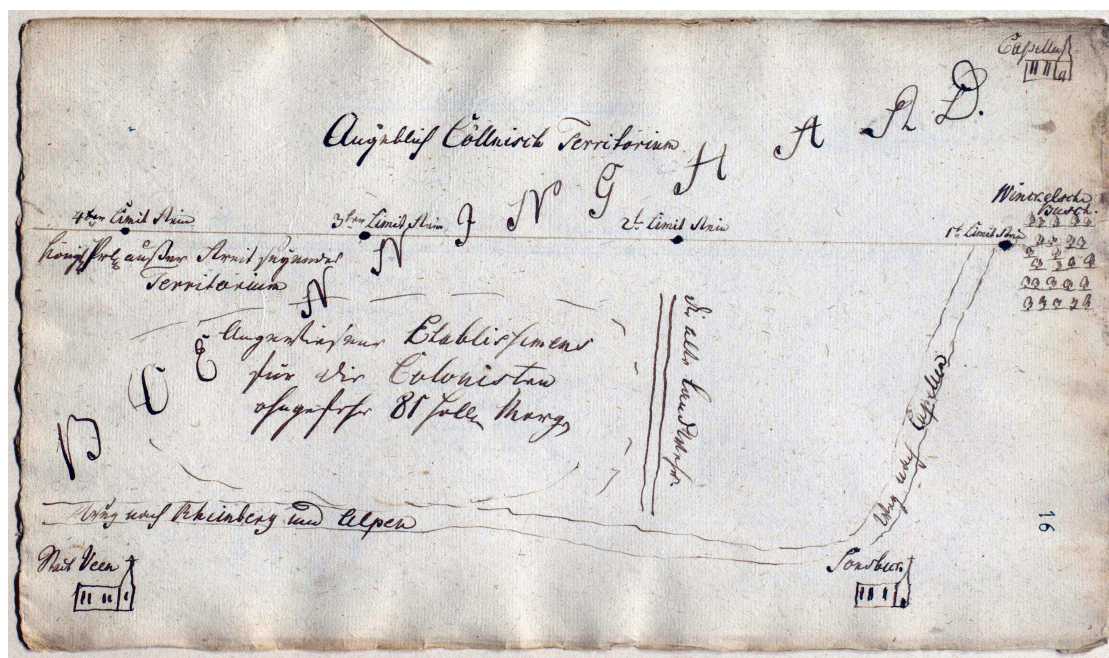 Capellen
Angeblich Cöllnisch Territorium
BÖNNINGHARD.
Winckelsche
Busch.
4ter Limit Stein
3ter Limit Stein
2t. Limit Stein
1t. Limit Stein
Königl. außer Streit seyendes
Territorium
Angewiesene Etablissemens
für die Colonisten
ohngefehr 81 holl. Morg.
die alte Landwehr.
Weg nach Capellen
Weg nach Rheinberg und Alpen
Stadt Veen
Sonsbeck
16